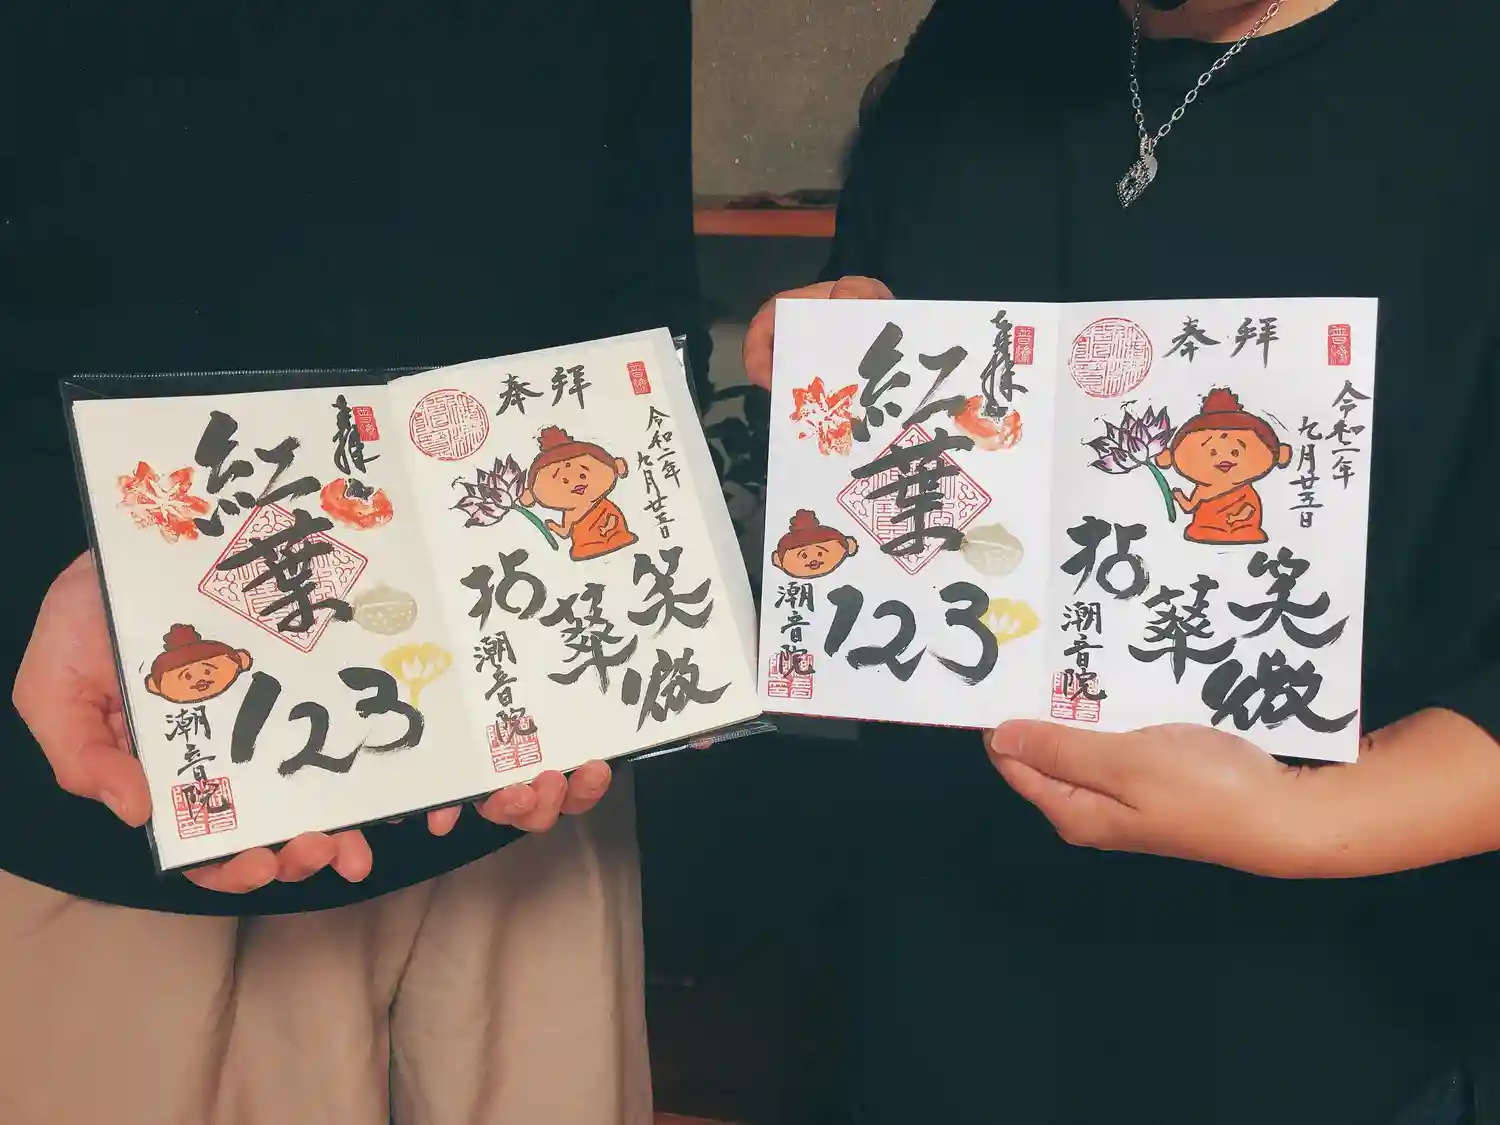 奉拝
紅葉
123
潮音院
奉拝
令和二年
九月廿五日
拈華
微笑
潮音院
奉拝
紅葉
123
潮音院
奉拝
令和二年
九月廿五日
拈華
微笑
潮音院